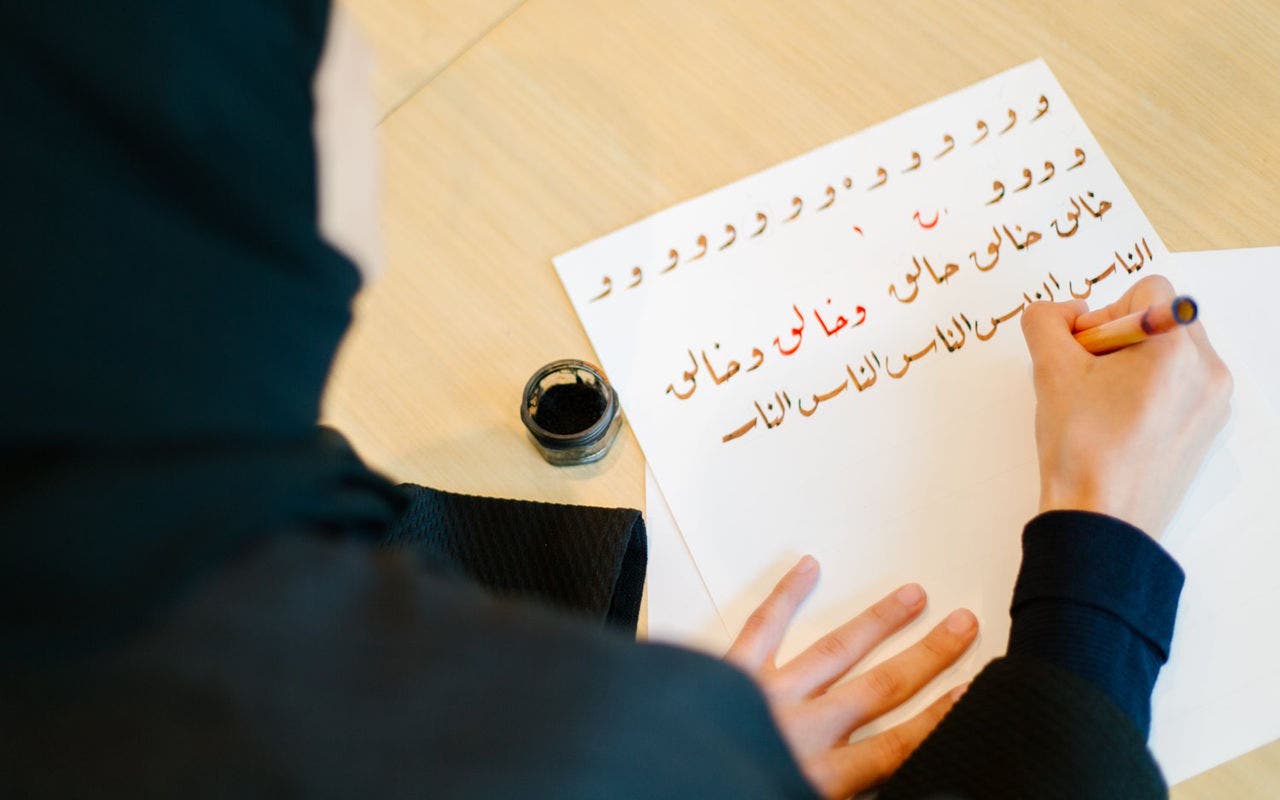 و و و و و و و و و و و و و و
و و و و
خالق خالق حالق وخالق وخالق
الناس الناس الناس الناس النا